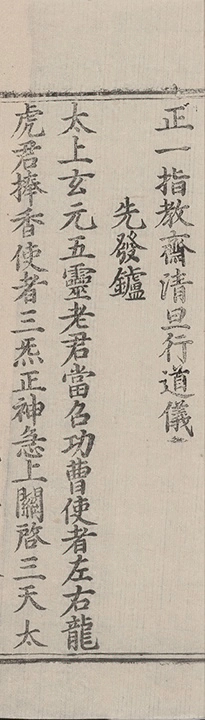 正一指教齋清旦行道儀
先發鑪
太上玄元五靈老君當召功曹使者左右龍
虎君捧香使者三炁正神急上關啓三天太